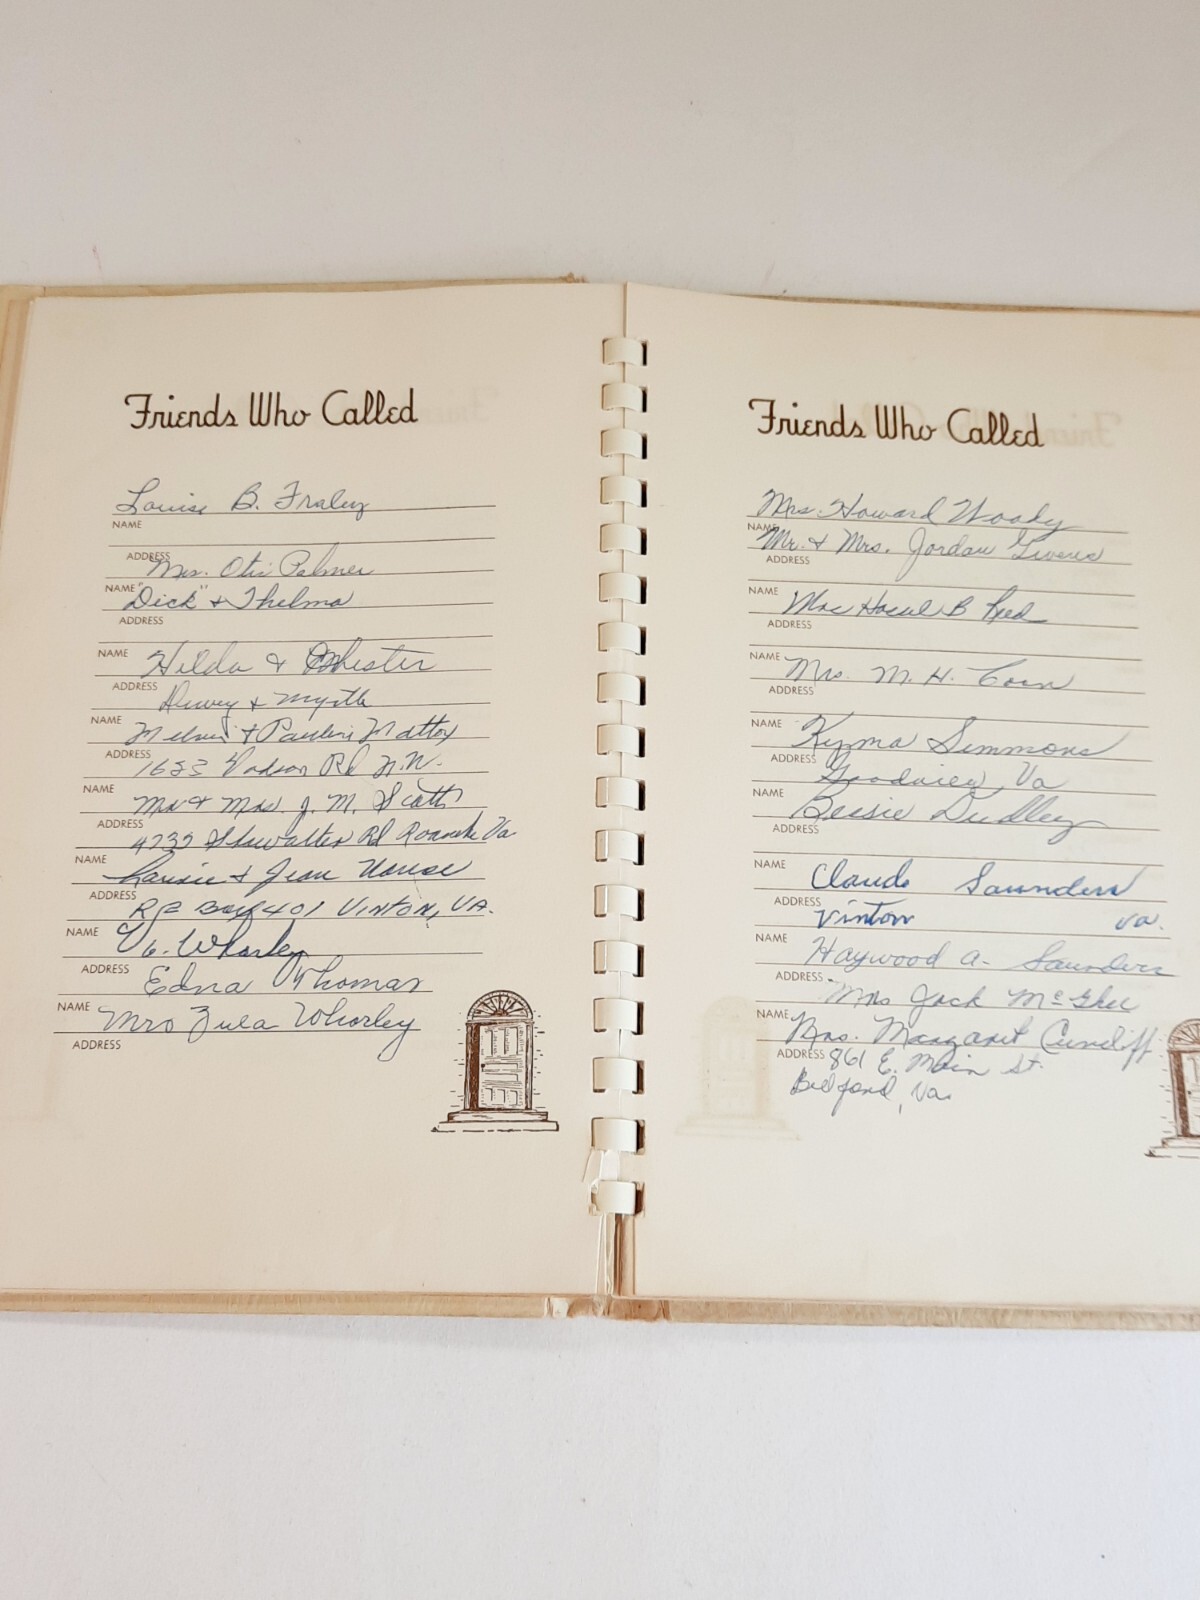 Friends Who Called
Louise B. Fraley
NAME
ADDRESS
Mrs. Otis Palmer
NAME
"Dick" + Thelma
ADDRESS
NAME
Hilda + Chester
ADDRESS
Dewey + Myrtle
NAME
Melvin + Pauline Mattox
ADDRESS
1633 Rd N.W.
NAME
Mr + Mrs. J. M. Scott
ADDRESS
4232 Showalter Rd Roanoke Va
NAME
+ Jean
ADDRESS
Box 401 VINTON, VA.
NAME
Whorley
ADDRESS
Edna Thomas
NAME
Mrs Zula Whorley
ADDRESS
Friends Who Called
Mrs. Howard Woody
NAME
Mr. + Mrs. Jordan Givens
ADDRESS
NAME
B
ADDRESS
NAME
Mrs. M. H.
ADDRESS
NAME
Kyma Simmons
ADDRESS
Goodview, Va
NAME
Bessie Dudley
ADDRESS
NAME
Claude Saunders
ADDRESS
Vinton va.
NAME
Haywood A. Saunders
ADDRESS
Mrs Jack McGhee
NAME
Mrs. Margaret Cundiff
ADDRESS
861 E. Main St.
Bedford, Va